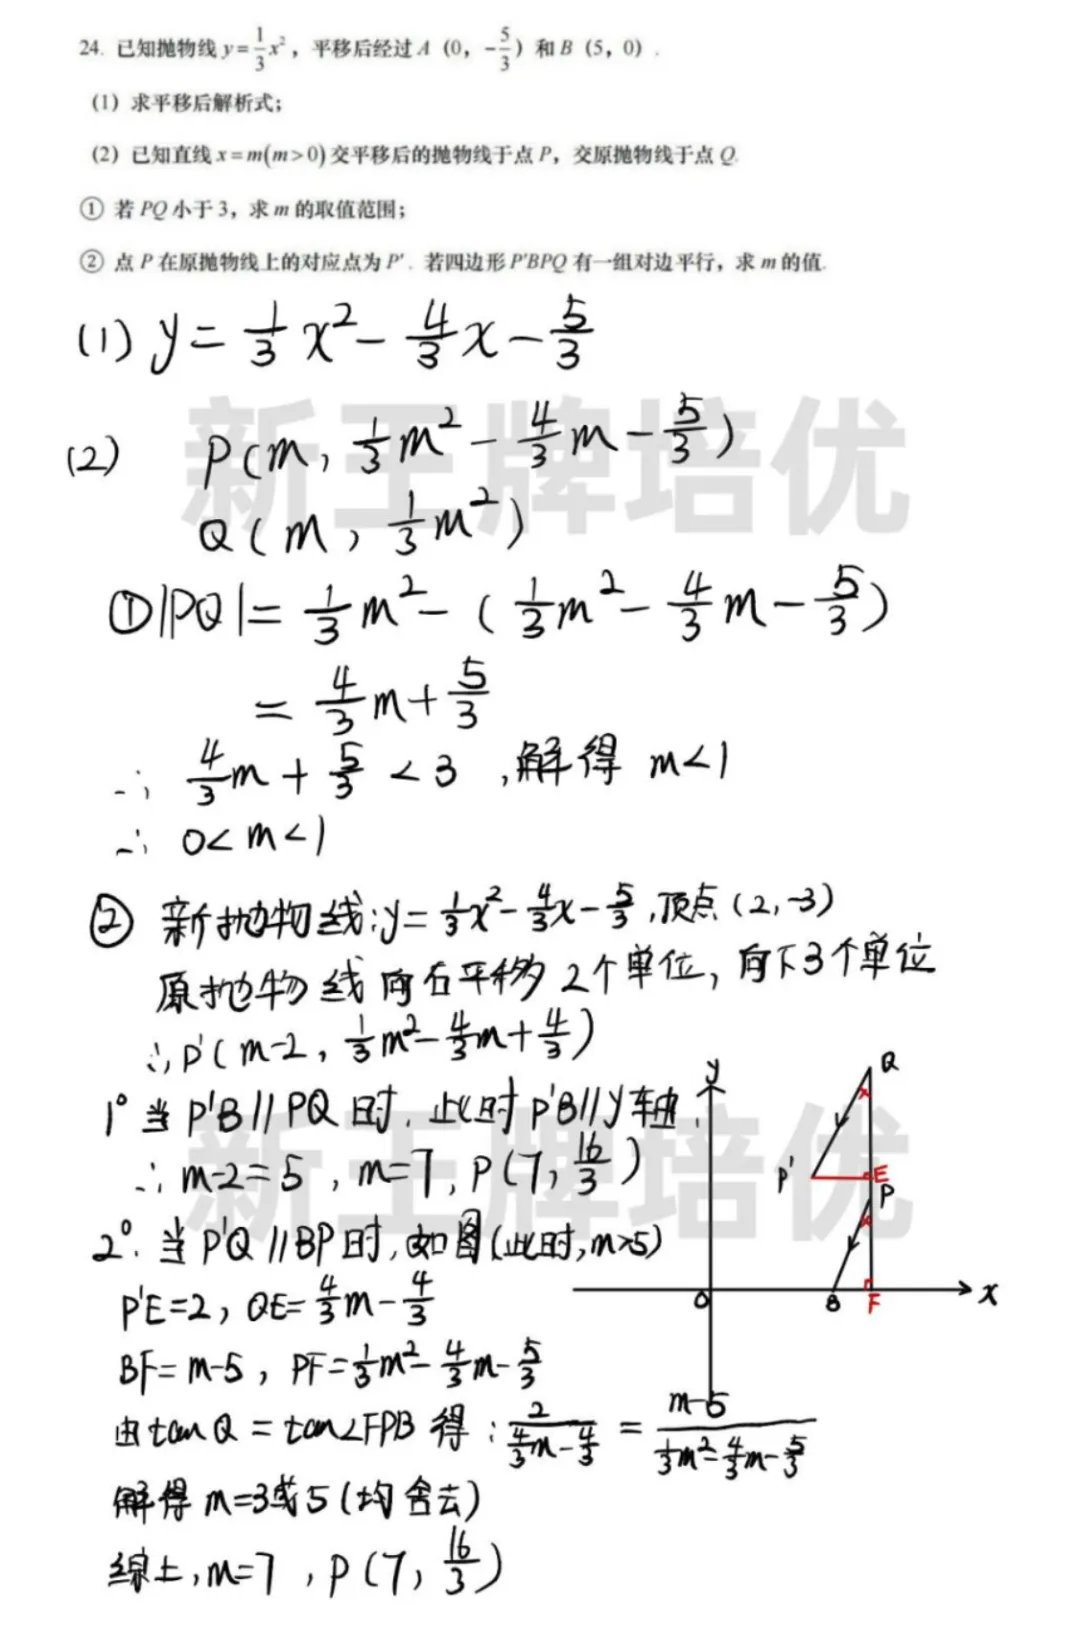 24. 已知抛物线 y=1/3x²，平移后经过 A（0，-5/3）和 B（5，0）.
(1) 求平移后解析式；
(2) 已知直线 x=m(m>0) 交平移后的抛物线于点 P，交原抛物线于点 Q.
① 若 PQ 小于 3，求 m 的取值范围；
② 点 P 在原抛物线上的对应点为 P'．若四边形 P'BPQ 有一组对边平行，求 m 的值.
(1) y=1/3x²-4/3x-5/3
新王牌培优
(2) P(m, 1/3m²-4/3m-5/3)
Q(m, 1/3m²)
①|PQ|=1/3m²-(1/3m²-4/3m-5/3)
=4/3m+5/3
∴ 4/3m+5/3<3 ,解得 m<1
∴ 0<m<1
② 新抛物线:y=1/3x²-4/3x-5/3,顶点(2,-3)
原抛物线向右平移2个单位，向下3个单位
∴P'(m-2, 1/3m²-4/3m+4/3)
新王牌培优
1° 当 P'B//PQ 时，此时 P'B//y轴，
∴ m-2=5, m=7, P(7, 16/3)
2°. 当 P'Q//BP 时,如图(此时,m>5)
P'E=2, QE=4/3m-4/3
BF=m-5, PF=1/3m²-4/3m-5/3
由 tanQ=tan∠FPB 得: 2/(4/3m-4/3)=(m-5)/(1/3m²-4/3m-5/3)
解得 m=3或5(均舍去)
综上, m=7, P(7, 16/3)
y
Q
P'
E
P
O
B
F
x